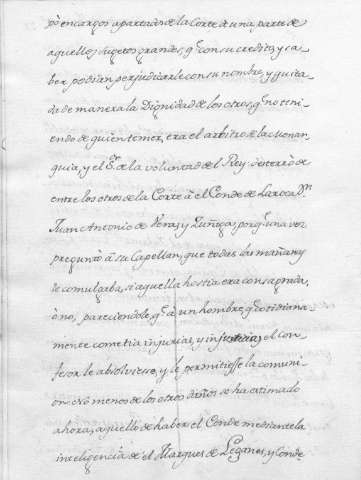 pò encargos apartados de la Corte de una parte de
aquellos sugetos grandes, q.̃ con su credito, y ca-
ber podian perjudicarle con su nombre, y quita-
da de manera la Dignidad de los otros, q.̃ no teni-
endo de quien temer, era el arbitro de la monar-
quia, y el S.r de la voluntad del Rey desterrò de
entre los otros de la Corte à el Conde de Laroca D.n
Juan Antonio de Vera, y Zuñiga, porq.̃ una vez
preguntò à su Capellan, que todas las mañanas
le comulgaba, si aquella hostia era consagrada,
ò no, pareciendole, q.̃ à un hombre, q.̃ cotidiana-
mente cometia injurias, y injusticias, el con-
fesor le absolviese, y le permitiesse la comuni-
on. No menos de los otros dichos se ha estimado
ahora, aquello de haber el Conde mediante la
inteligencia de el Marques de Leganes, y Conde